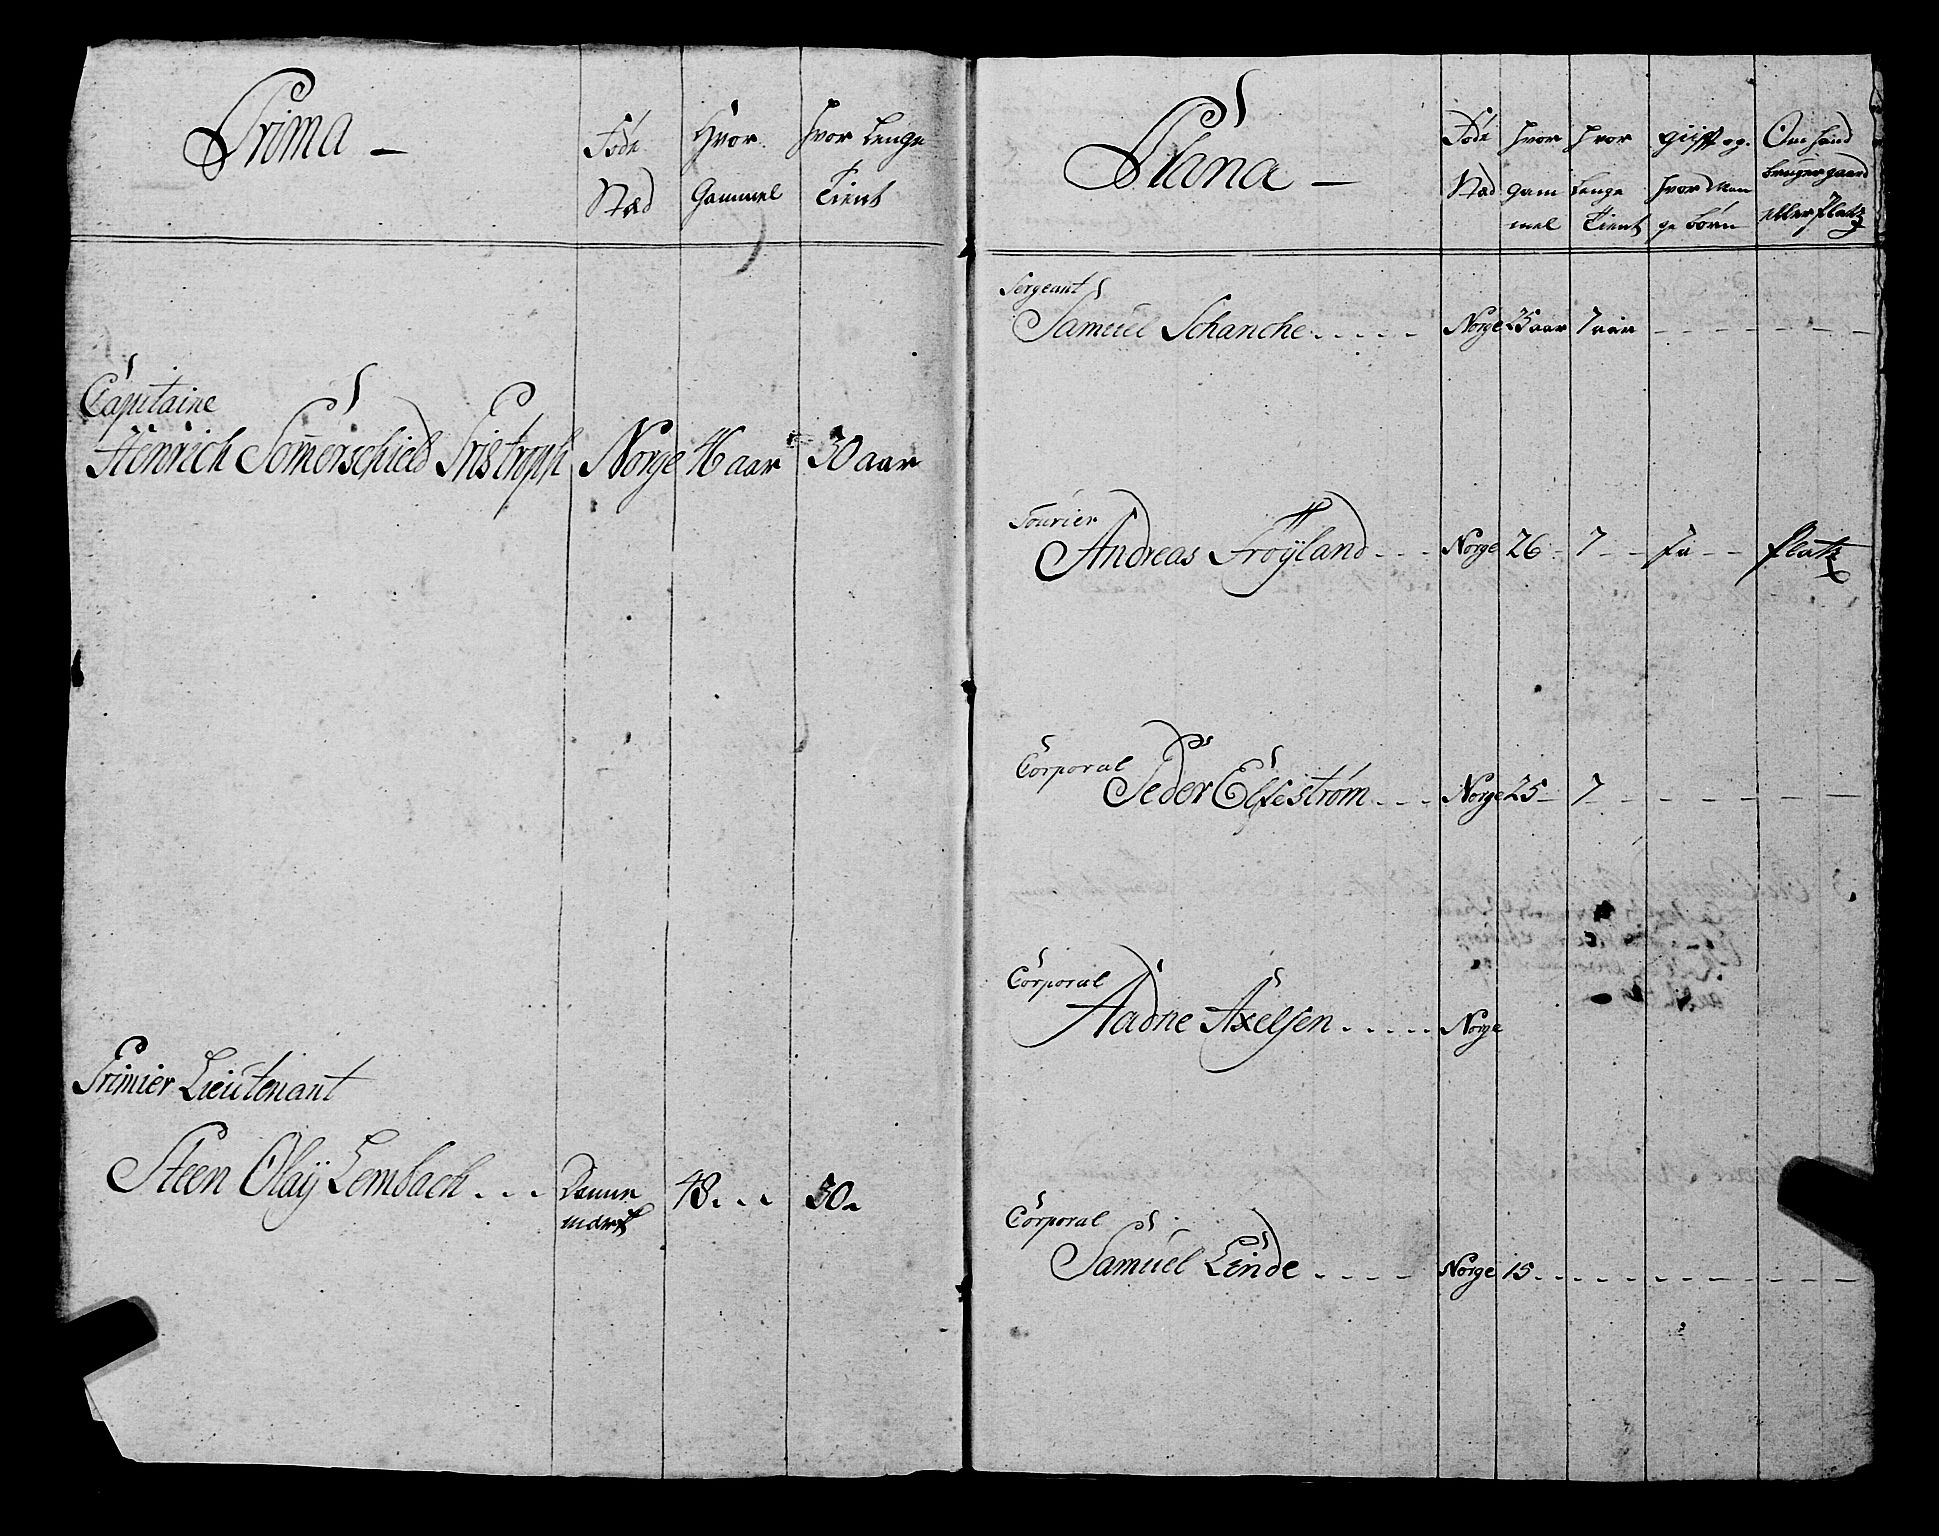 Prima -
Føde Stæd
Hvor Gammel
hvor Lenge Tient
Capitaine
Henrich Sommerschield Pristroph Norge 46 aar 30 aar
Primier Lieutenant
Steen Olaÿ Lembach . . . Danne 48. . . 30.
mark
Plana -
Føde Stæd
hvor gam mel
hvor Lenge Tient
gift og hvor Man ge børn
Om hand bruger gaard eller platz
Sergeant
Samuel Schanche . . . . . Norge 25 aar 7 aar - - - - - -
Fourier
Andreas Frøÿland . . . Norge 26 - 7 - - Ja - - platz
Corporal
Peder Elfestrøm . . . Norge 25 - 7 - - - - - -
Corporal
Aadne Axelsen . . . . . Norge
Corporal
Samuel Linde . . . . Norge 15 . . . . . . . . . .